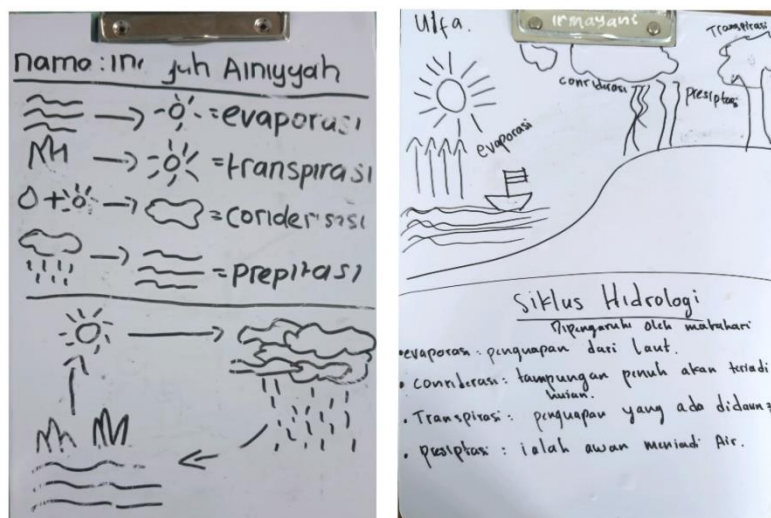 nama: In juh Ainiyyah
= evaporasi
= transpirasi
= conderisasi
= prepitasi
Ulfa. irmayani
Transpirasi
considerasi
presiptasi
evaporasi
Siklus Hidrologi
Dipengaruhi oleh matahari
• evaporasi : penguapan dari laut.
• considerasi : tampungan penuh akan terjadi
hujan.
• Transpirasi : penguapan yang ada didaun
• presiptasi : ialah awan menjadi Air.